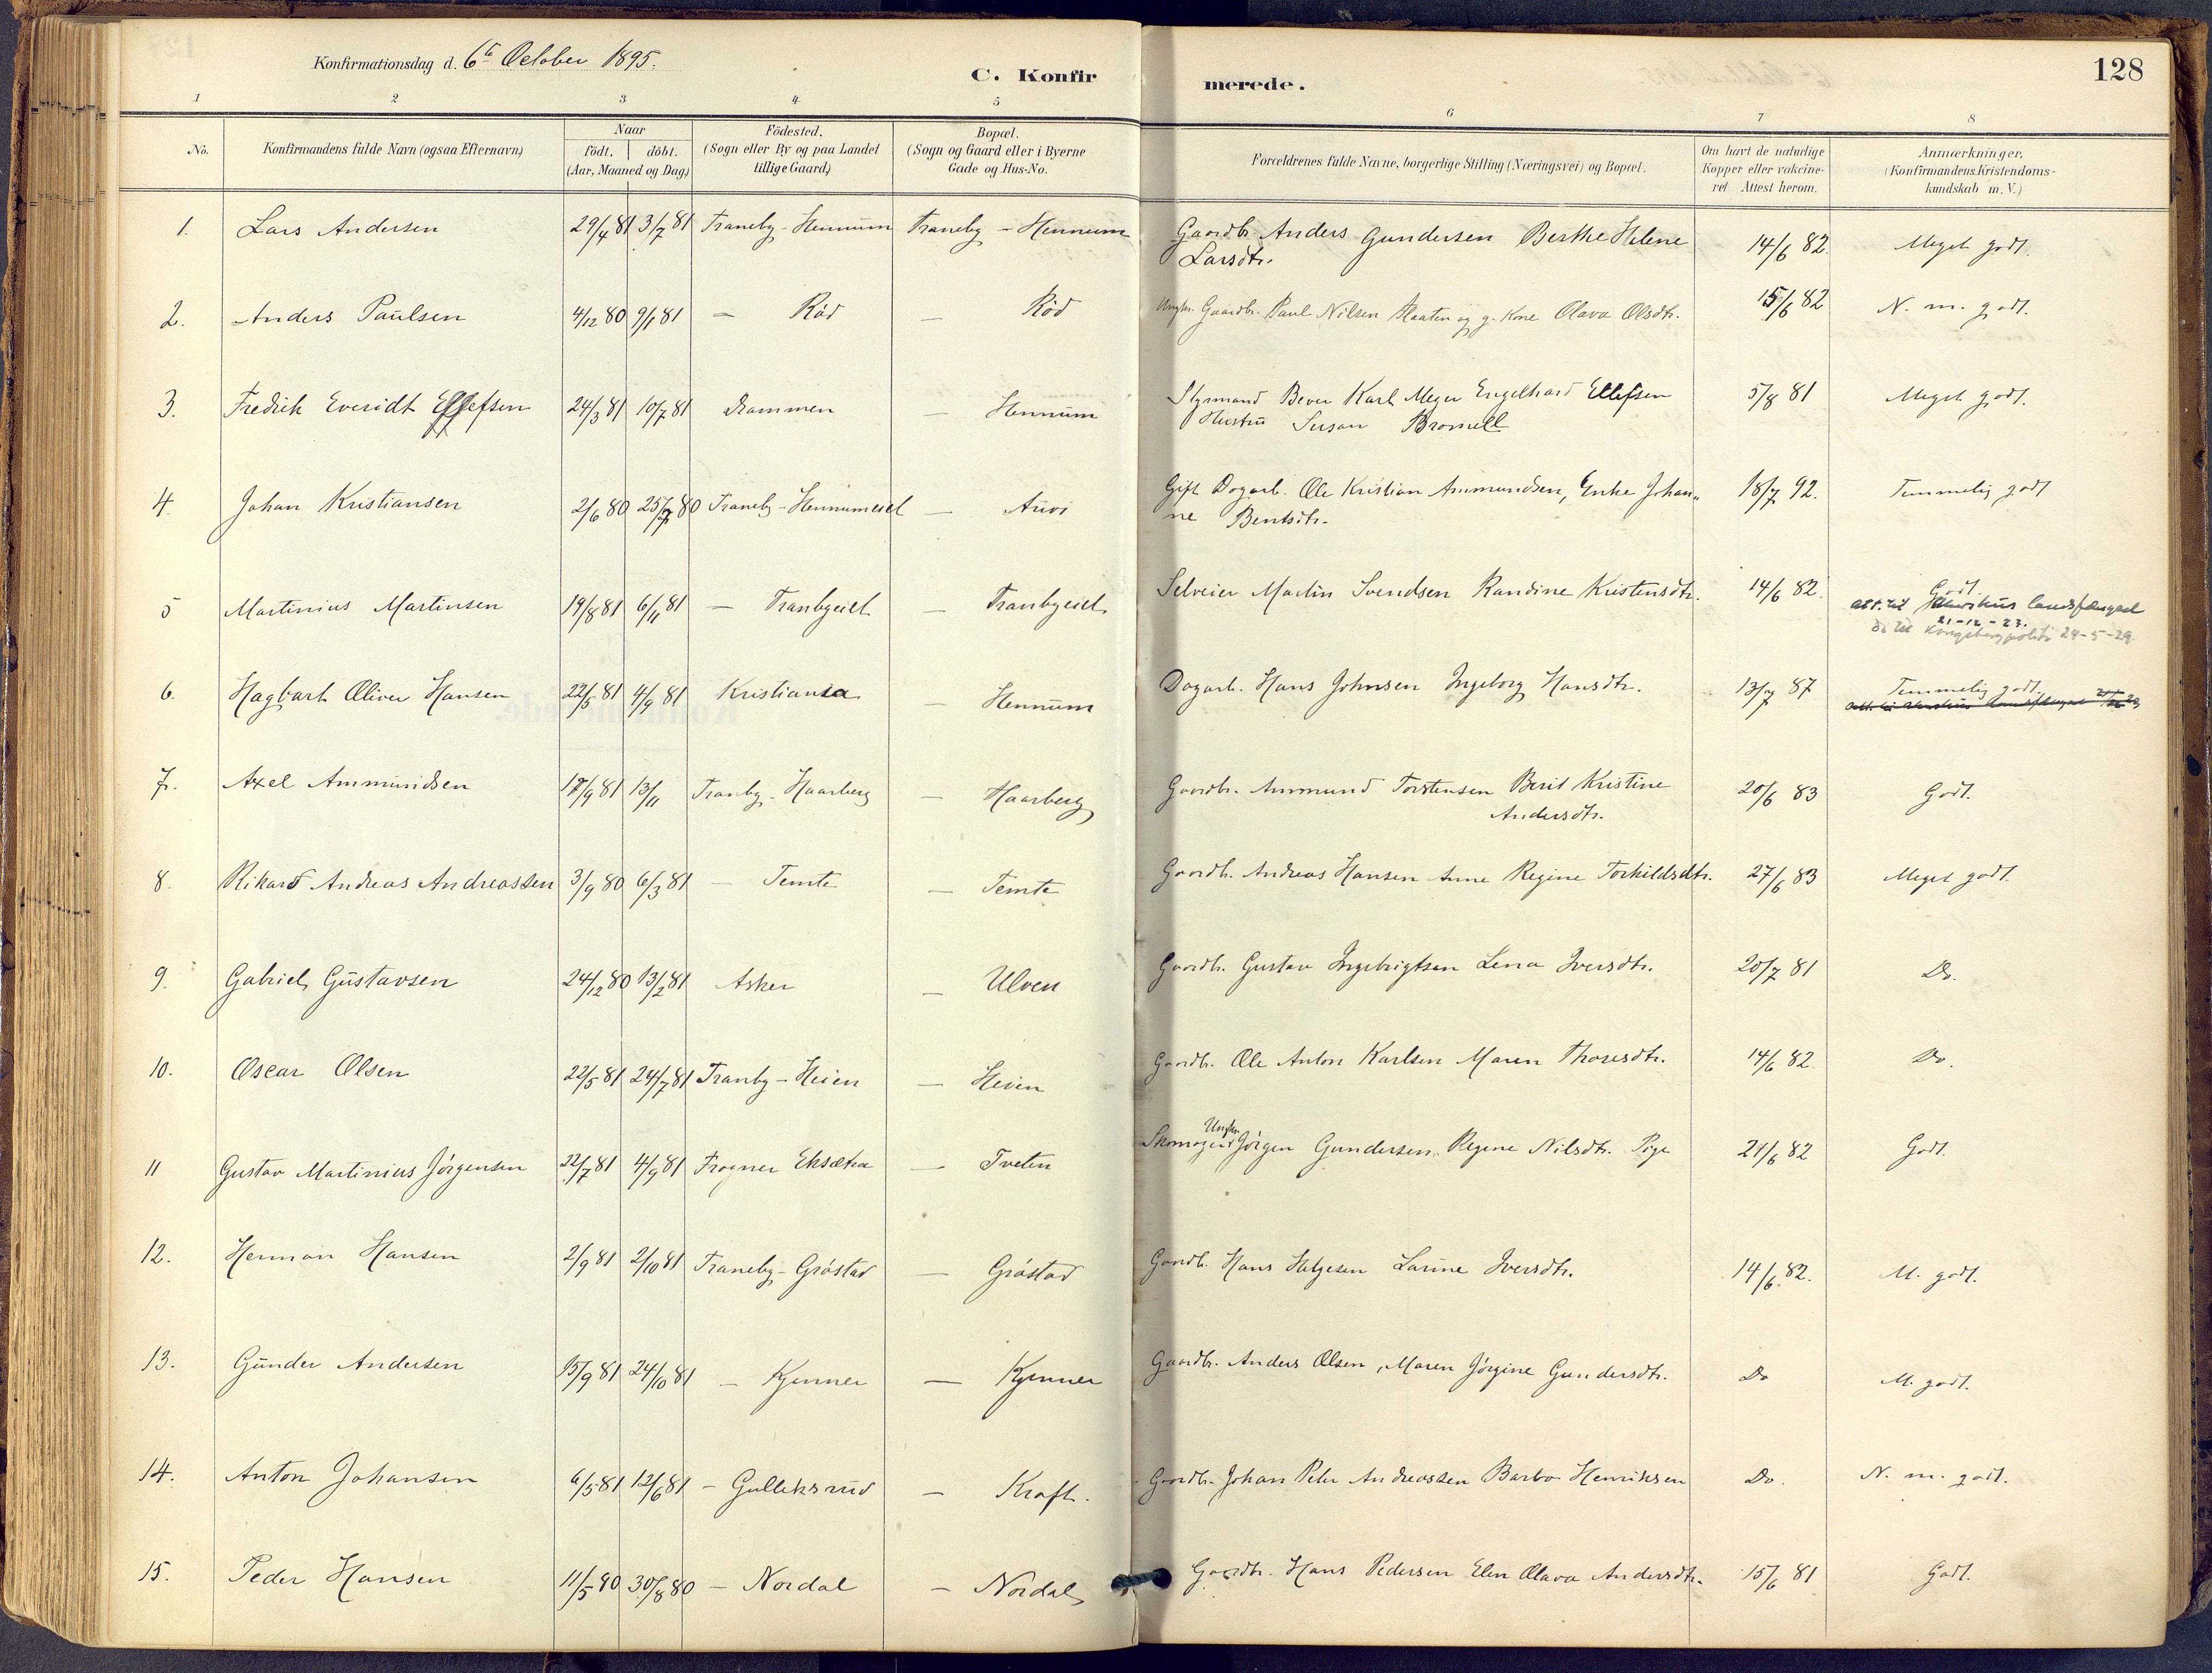 128
Konfirmationsdag d. 6te October 1895.
C. Konfirmerede.
1 2 3 4 5 6 7 8
No. Konfirmandens fulde Navn (ogsaa Efternavn) Naar födt. döbt. (Aar, Maaned og Dag) Födested. (Sogn eller By og paa Landet tillige Gaard) Bopæl. (Sogn og Gaard eller i Byerne Gade og Hus-No. Forældrenes fulde Navne, borgerlige Stilling (Næringsvei) og Bopæl. Om havt de naturlige Kopper eller vakcineret. Attest herom. Anmærkninger. (Konfirmandens Kristendomskundskab m. V.)
1. Lars Andersen 29/4 81 3/7 81 Traneby - Hennum Traneby - Hennum Gaardbr. Anders Gundersen Berthe Helene
Larsdtr. 14/6 82. Meget godt.
2. Anders Paulsen 4/12 80 9/1 81 — Röd — Röd Ungkr. Gaardbr. Paul Nilsen og g. Kone Olava Olsdtr. 15/6 82 N. m. godt.
3. Fredrik Everidt Ellefsen 24/3 81 10/7 81 Drammen — Hennum Styrmand Bever Karl Meyer Engelhard Ellefsen
Hustru Susan Bromell 5/8 81 Meget godt.
4. Johan Kristiansen 2/6 80 25/7 80 Traneby - Hennumeiet — Auvi Gift Dagarb. Ole Kristian Ammundsen, Enke Johan„
ne Bentsdtr. 18/7 92. Temmelig godt
5 Martinius Martinsen 19/8 81 6/11 81 — Tranbyeiet — Tranbyeiet Selveier Martin Svendsen Randine Kristensdtr. 14/6 82. Godt.
att. til landsfængsel
21-12-23.
Do til Kongsberg politi 24-5-29
6. Hagbart Oliver Hansen 22/5 81 4/9 81 Kristiania — Hennum Dagarb. Hans Johnsen Ingeborg Hansdtr. 13/7 87 Temmelig godt.
7. Axel Ammundsen 17/9 81 13/11 Tranby - Haarberg — Haarberg Gaardbr. Ammund Torstensen Berit Kristine
Andersdtr. 20/6 83 Godt.
8. Rikard Andreas Andreassen 3/9 80 6/3 81 — Temte — Temte Gaardb. Andreas Hansen Anne Regine Torkildsdtr. 27/6 83 Meget godt.
9. Gabriel Gustavsen 24/12 80 13/2 81 Asker — Ulven Gaardb. Gustav Ingebrigtsen Lena Iversdtr. 20/7 81 Do.
10. Oscar Olsen 22/5 81 24/7 81 Tranby - Heien — Heien Gaardb. Ole Anton Karlsen Maren Thoresdtr. 14/6 82. Do.
11 Gustav Martinius Jörgensen 22/7 81 4/9 81 Frogner Eksætra — Tveten Skomager Ungkr. Jörgen Gundersen, Regine Nilsdtr. Pige 21/6 82 Godt.
12. Herman Hansen 2/9 81 2/10 81 Traneby - Gröstad — Gröstad Gaardb. Hans Helgesen Larine Iversdtr. 14/6 82. M. godt.
13. Gunder Andersen 15/9 81 24/10 81 — Kjenner — Kjenner Gaardbr. Anders Olsen, Maren Jörgine Gundersdtr. Do M. godt.
14. Anton Johansen 6/5 81 12/6 81 — Gulliksrud — Kraft. Gaardbr. Johan Peter Andreassen Barbo Henriksen Do. N. m. godt.
15. Peder Hansen 11/5 80 30/8 80 — Nordal — Nordal Gaardbr. Hans Pedersen Elen Olava Andersdtr. 15/6 81 Godt.